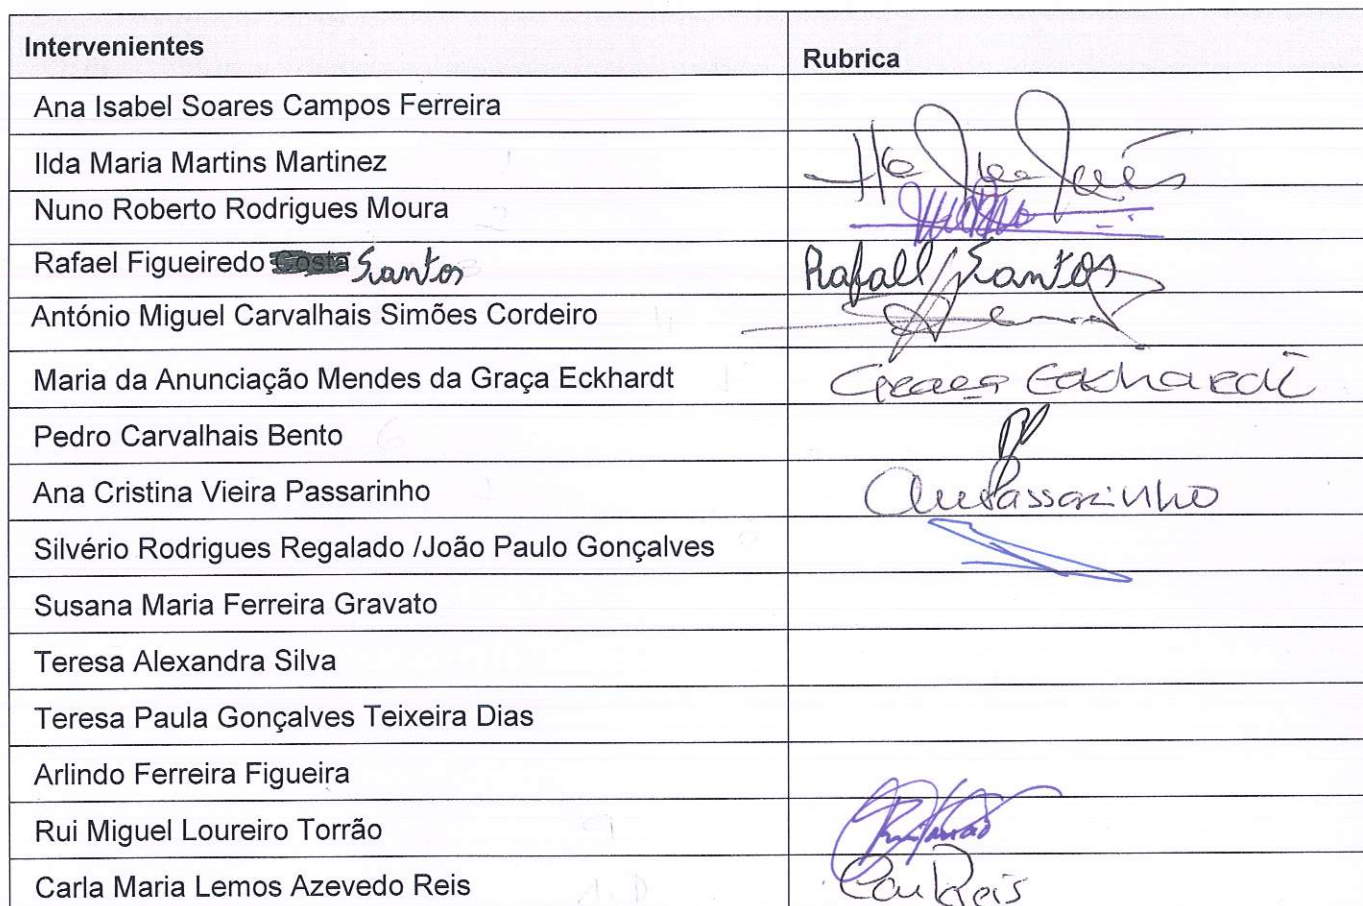 Intervenientes Rubrica
Ana Isabel Soares Campos Ferreira
Ilda Maria Martins Martinez
Nuno Roberto Rodrigues Moura
Rafael Figueiredo Costa Santos Rafael Santos
António Miguel Carvalhais Simões Cordeiro
Maria da Anunciação Mendes da Graça Eckhardt Graça Eckhardt
Pedro Carvalhais Bento
Ana Cristina Vieira Passarinho Ana Passarinho
Silvério Rodrigues Regalado /João Paulo Gonçalves
Susana Maria Ferreira Gravato
Teresa Alexandra Silva
Teresa Paula Gonçalves Teixeira Dias
Arlindo Ferreira Figueira
Rui Miguel Loureiro Torrão
Carla Maria Lemos Azevedo Reis Reis